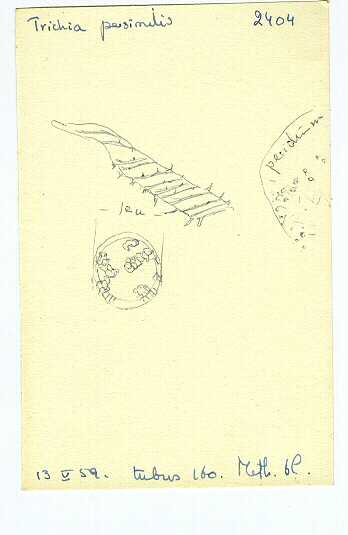 Trichia persimilis 2404
peridium
13 V 59. tubus 160. Meth. bl.